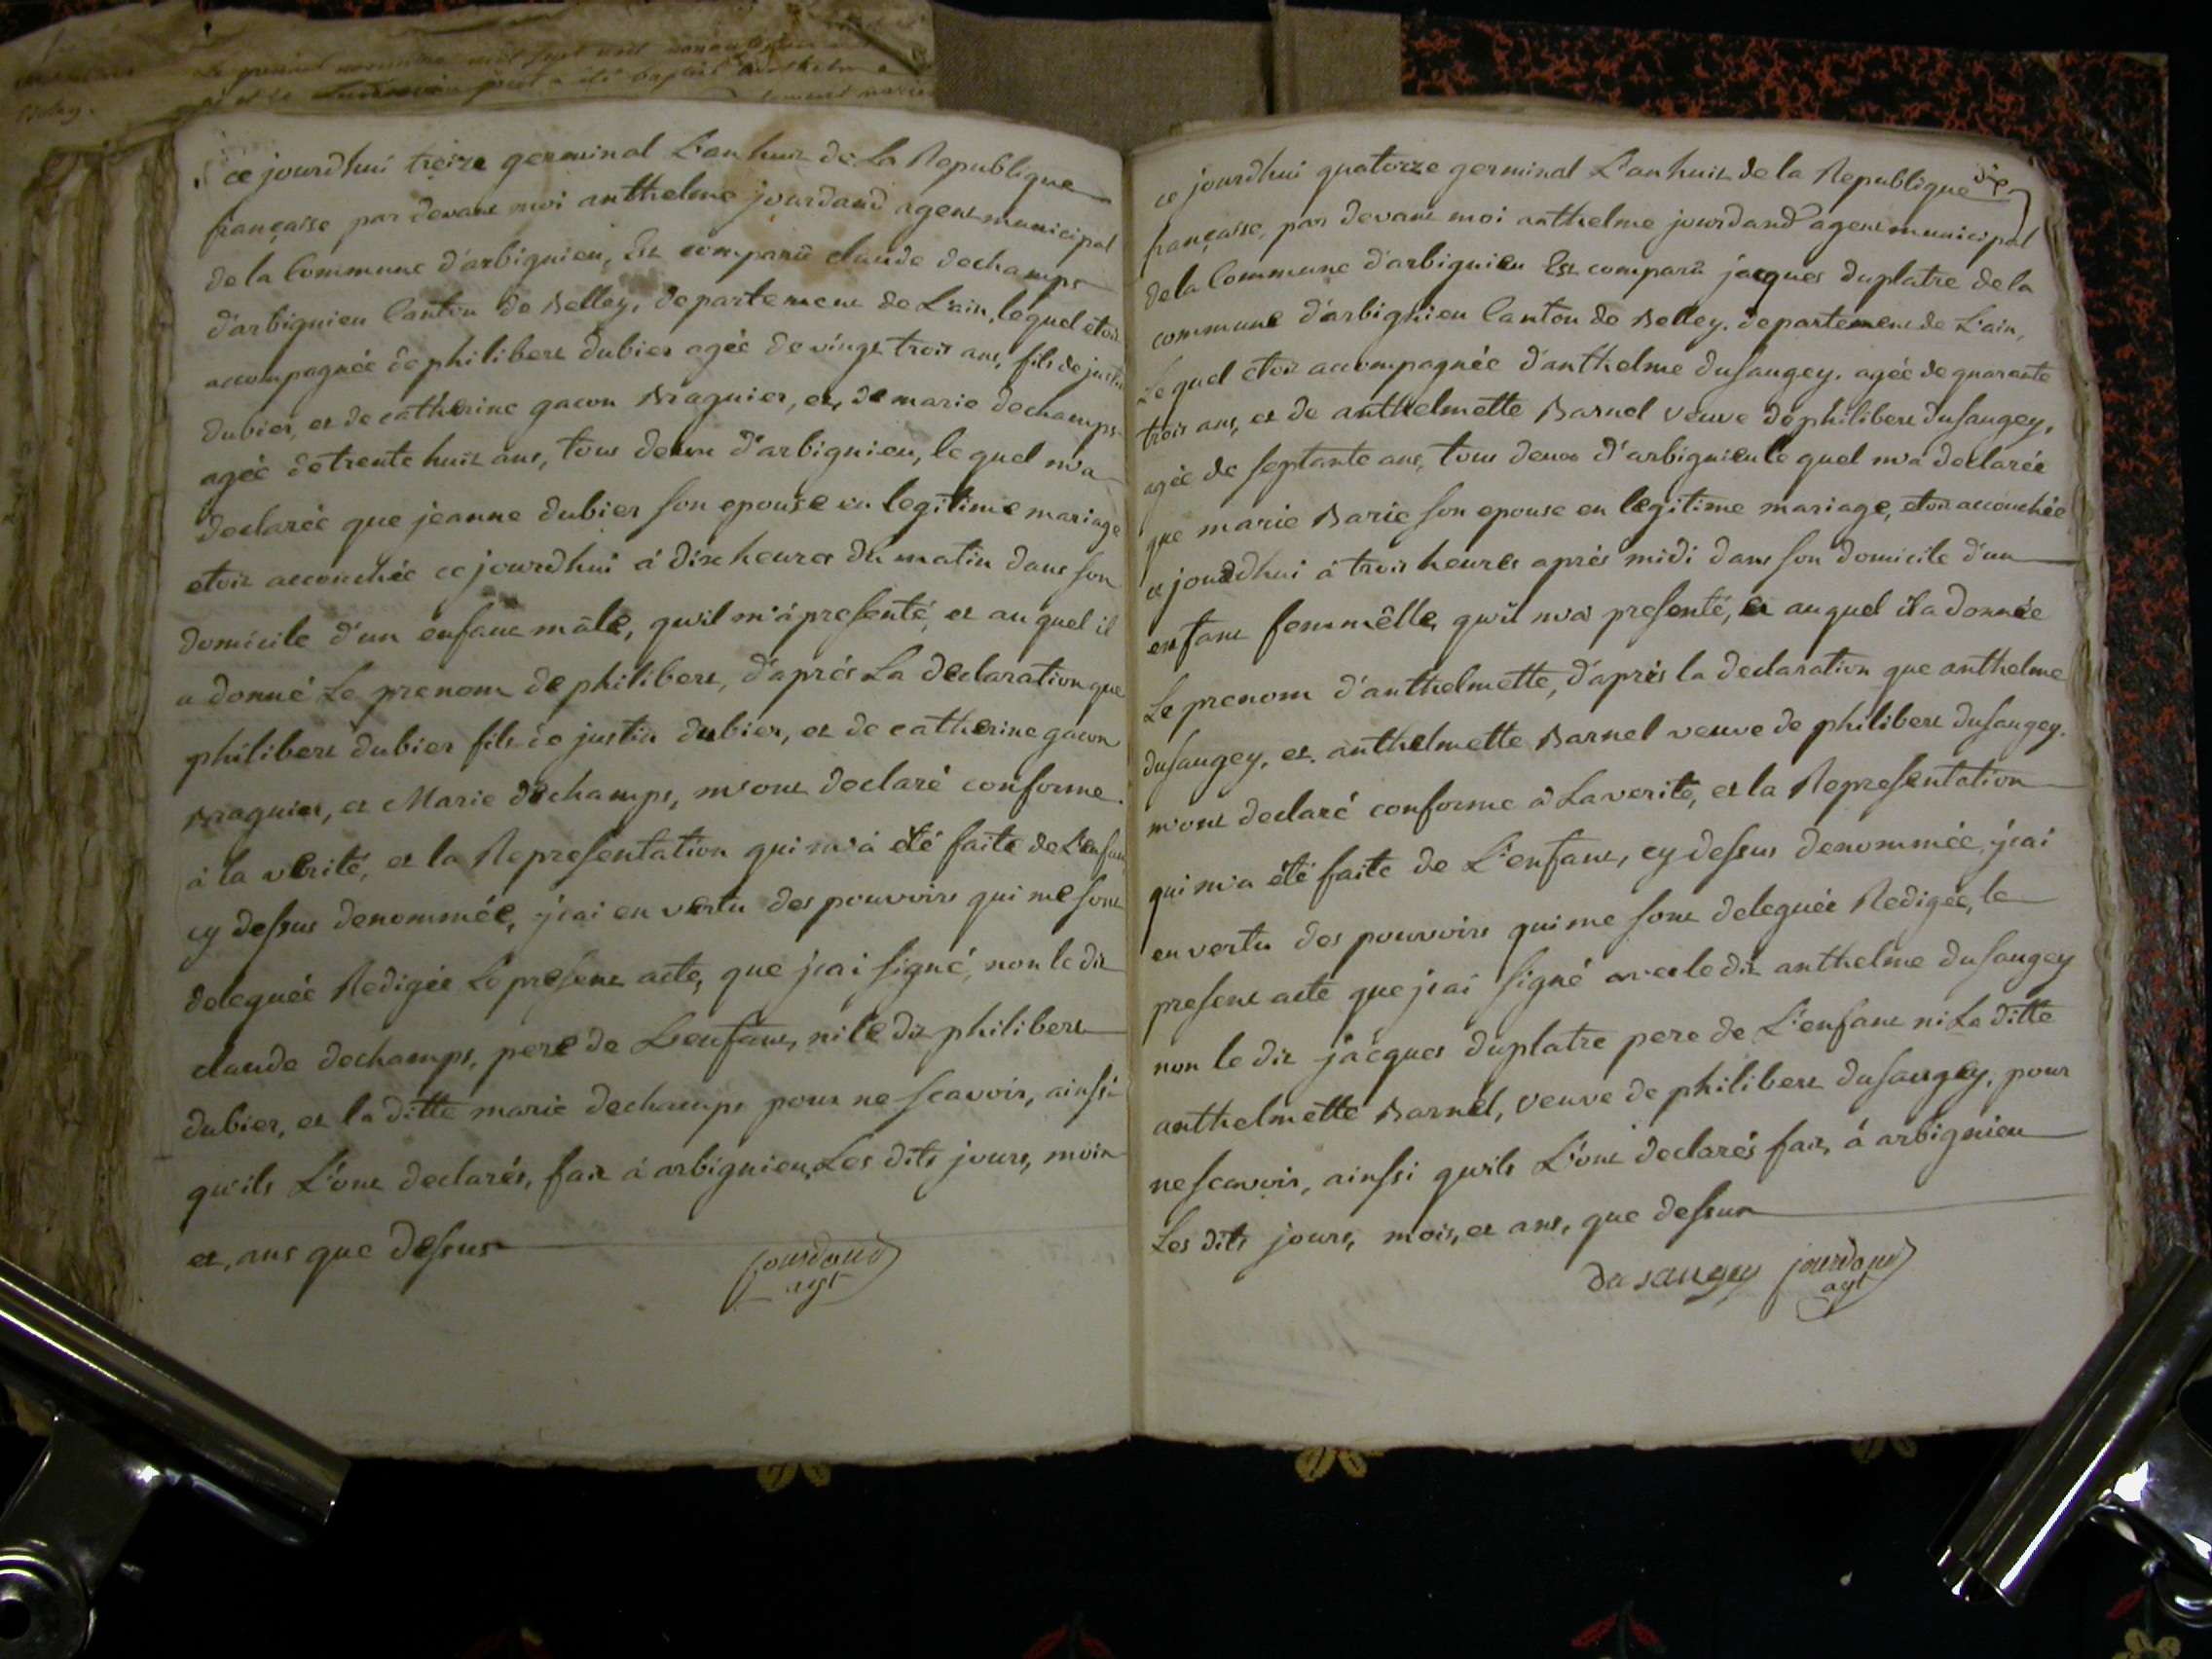 ce jourdhui treize germinal L'an huit de La Republique
française par devant moi anthelme jourdand agent municipal
de la Commune d'arbignieu, Est comparû claude dechamps
d'arbignieu Canton de Belley, departement de L'ain, lequel etoit
accompagnée de philibert dubier agée de vingt trois ans, fils de justin
dubier, et de catherine gacon Braguier, et, de marie dechamps
agée de trente huit ans, tous deux d'arbignieu, lequel m'a
declarée que jeanne dubier son epouse en legitime mariage
etoit accouchée ce jourdhui á dix heures du matin dans son
domicile d'un enfant mâle, qu'il m'á presenté, et au quel il
a donné Le prenom de philibert, d'aprés La declaration que
philibert dubier fils de justin dubier, et de catherine gacon
Braguier, et Marie dechamps, m'ont declaré conforme
á la vérité, et la Representation qui m'á été faite de L'enfant
cy dessus denommée, j'ai en vertu des pouvoirs qui me sont
deleguée Redigée Le present acte, que j'ai signé, non le dit
claude dechamps, pere de L'enfant, ni le dit philibert
dubier, et la ditte marie dechamps pour ne scavoir, ainssi
qu'ils L'ont declarés, fait á arbignieu, Les dits jours, mois
et, ans que dessus
jourdand
agt
ce jourdhui quatorze germinal L'an huit de la Republique
française, par devant moi anthelme jourdand agent municipal
de la Commune d'arbignieu Est comparû jacques duplatre de la
commune d'arbignieu Canton de Belley. departement de L'ain,
Le quel etoit accompagnée d'anthelme dusaugey. agée de quarante
trois ans, et de anthelmette Barnel veuve de philibert dusaugey,
agée de septante ans, tous deux d'arbignieu le quel m'a declarée
que marie Barie son epouse en legitime mariage, etoit accouchée
ce jourdhui á trois heures aprés midi dans son domicile d'un
enfant femmêlle, qu'il m'a presenté, et au quel il a donnée
Le prenom d'anthelmette, d'aprés la declaration que anthelme
dusaugey, et. anthelmette Barnel veuve de philibert dusaugey.
m'ont declaré conforme á La verité, et la Representation
qui m'a été faite de L'enfant, cy dessus denommée, j'ai
en vertu des pouvoirs qui me sont deleguée Redigée, le
present acte que j'ai signé avec le dit anthelme dusaugey
non le dit jacques duplatre pere de L'enfant ni La ditte
anthelmette Barnel, veuve de philibert dusaugey, pour
ne scavoir, ainssi qu'ils L'ont declarés fait, á arbignieu
Les dits jours, mois, et ans, que dessus
dusaugey jourdand
agt